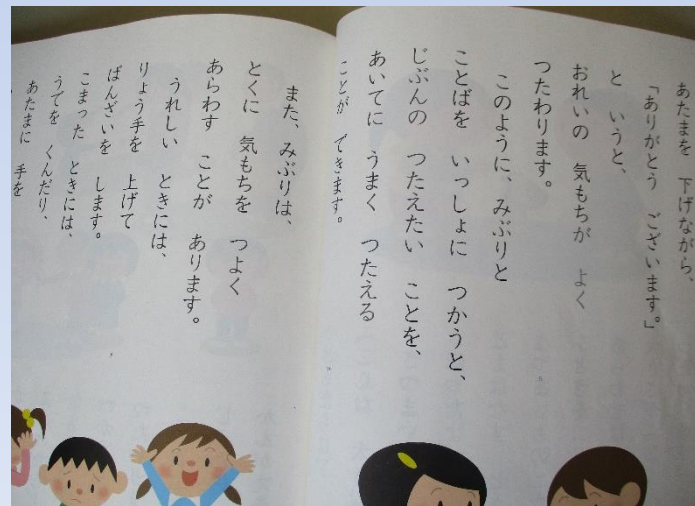 あたまを　下げながら、
「ありがとう　ございます。」
と　いうと、
おれいの　気もちが　よく
つたわります。
このように、みぶりと
ことばを　いっしょに　つかうと、
じぶんの　つたえたい　ことを、
あいてに　うまく　つたえる
ことが　できます。
また、みぶりは、
とくに　気もちを　つよく
あらわす　ことが　あります。
うれしい　ときには、
りょう手を　上げて
ばんざいを　します。
こまった　ときには、
うでを　くんだり、
あたまに　手を